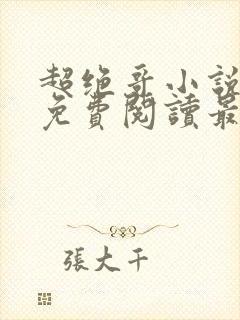 超绝哥小說
免費閱讀最
張大千